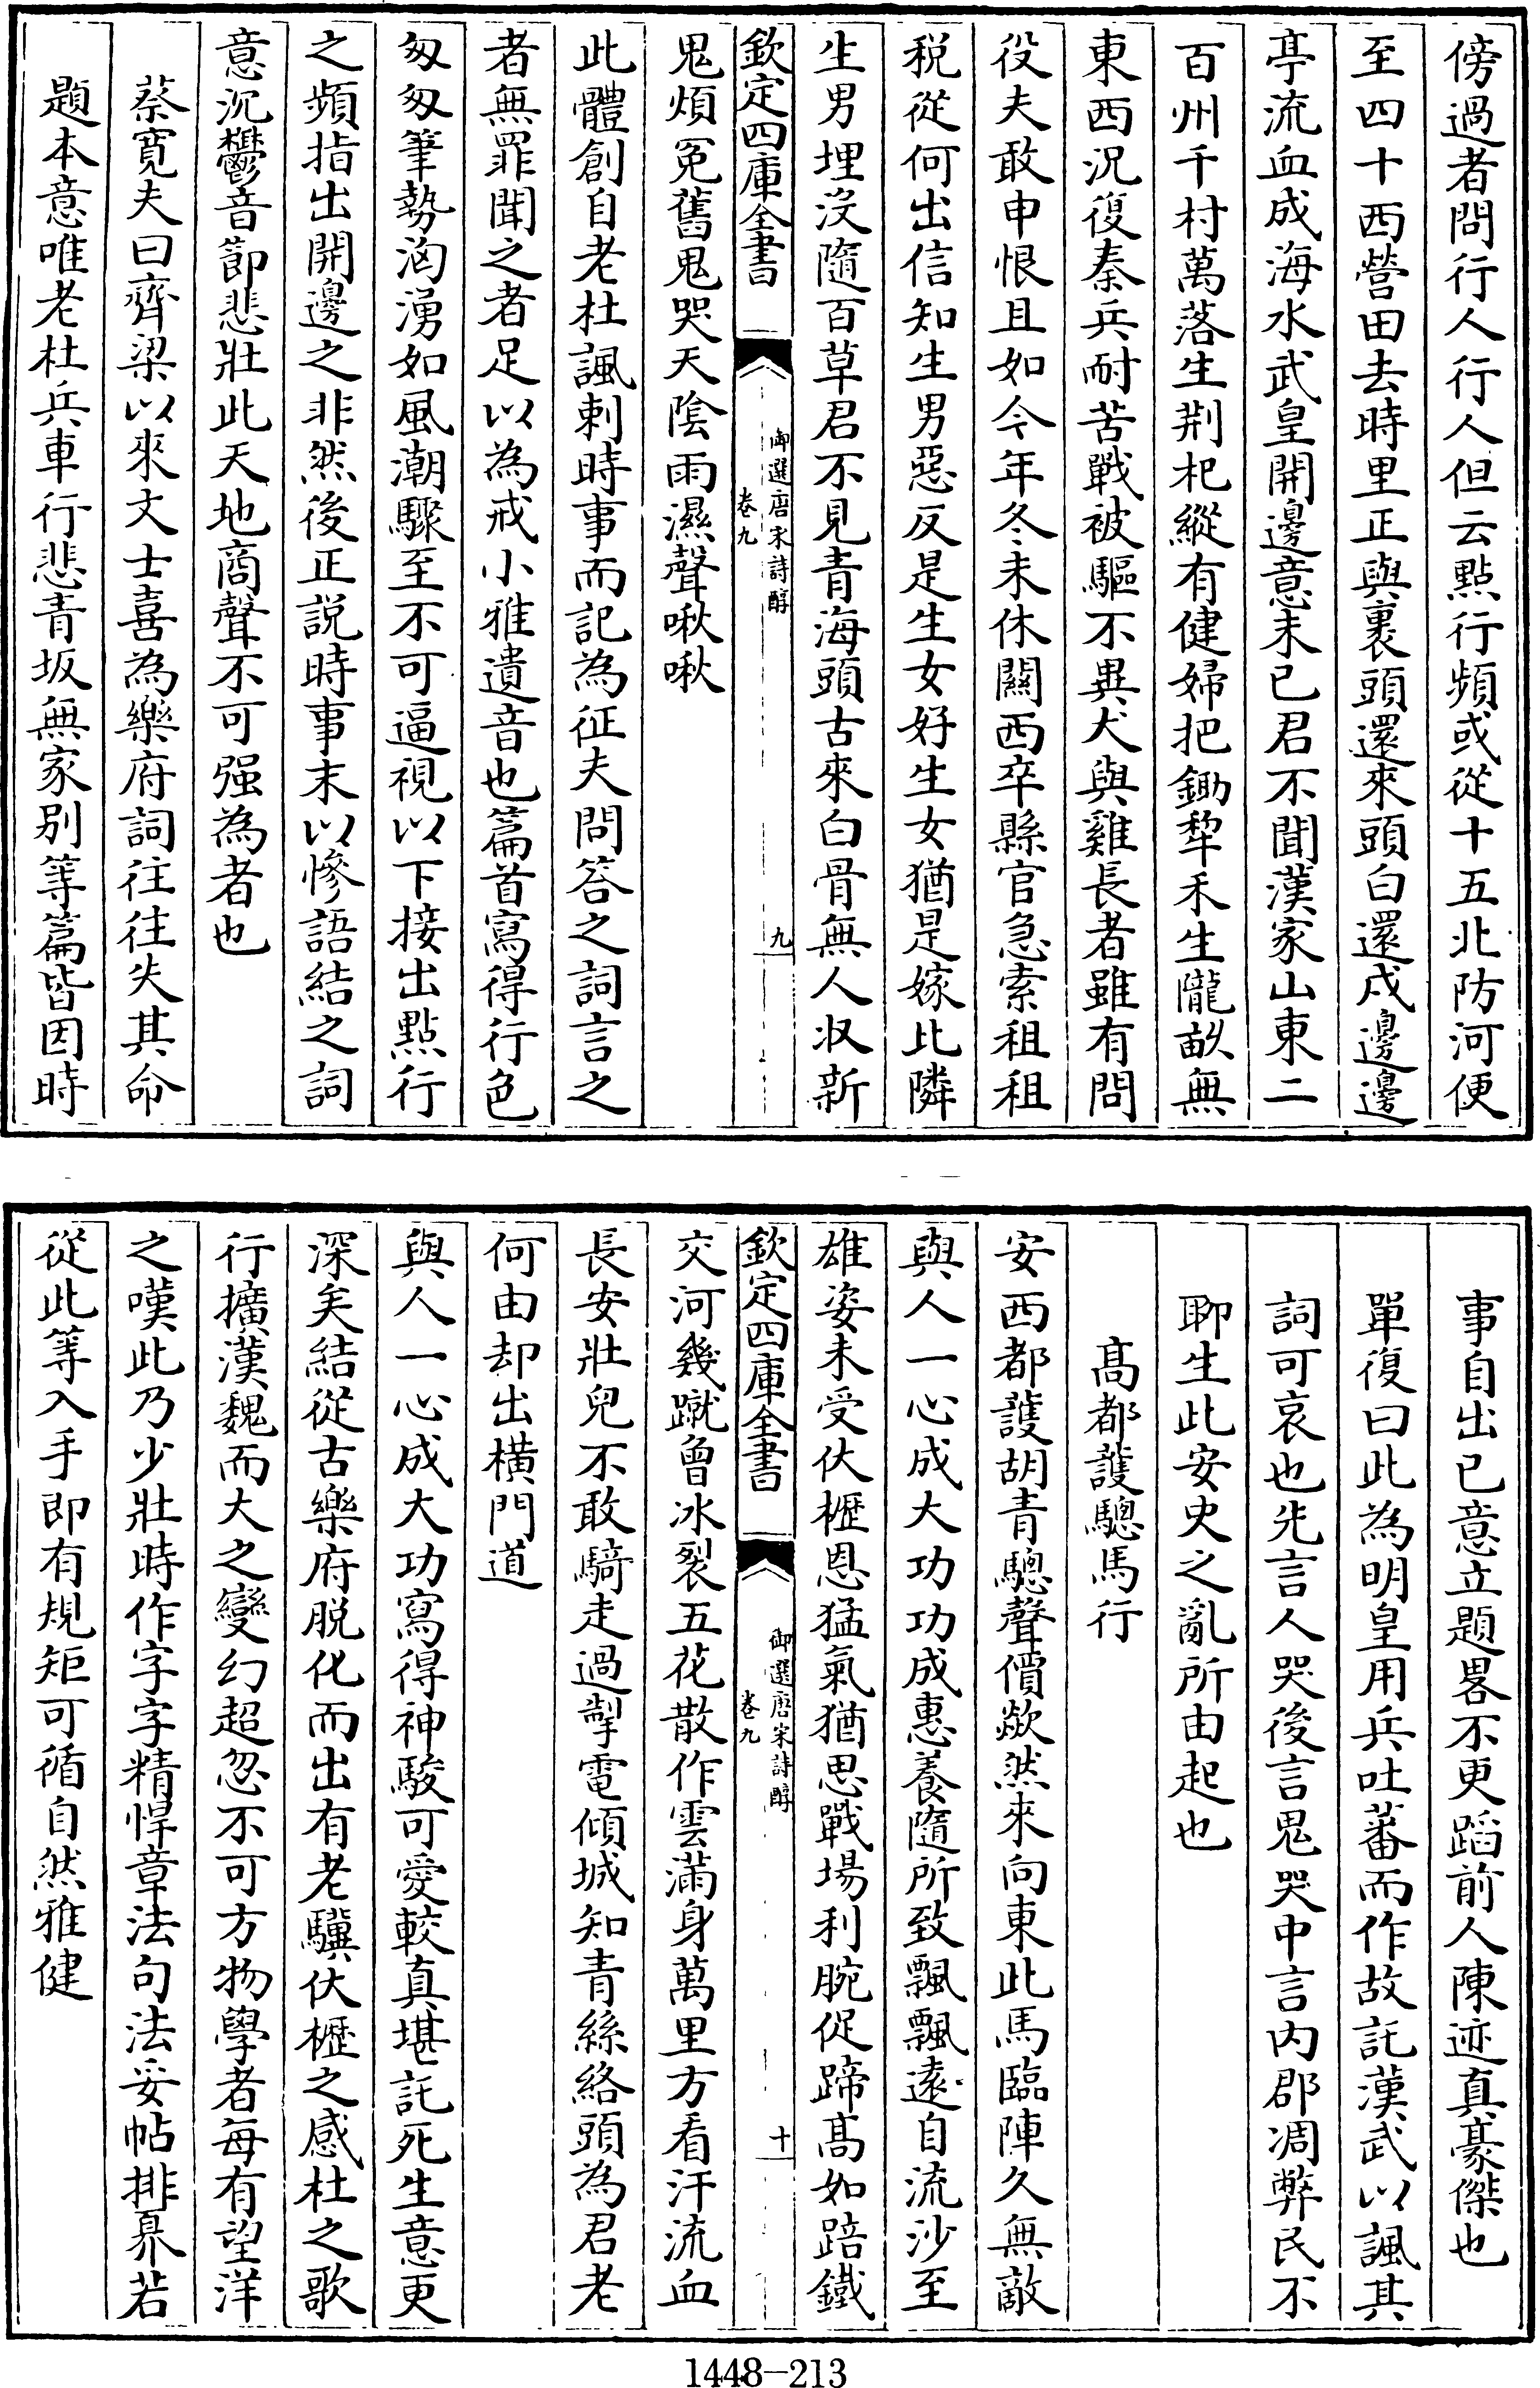 傍過者問行人行人但云點行頻或從十五北防河便
至四十西營田去時里正與裹頭還來頭白還戍邊邊
亭流血成海水武皇開邊意未已君不聞漢家山東二
百州千村萬落生荆杞縱有健婦把鋤犂禾生隴畝無
東西況復秦兵耐苦戰被驅不異犬與雞長者雖有問
役夫敢申恨且如今年冬未休關西卒縣官急索租租
税從何出信知生男惡反是生女好生女猶是嫁比隣
生男埋没隨百草君不見青海頭古來白骨無人收新
欽定四庫全書
御選唐宋詩醇
卷九
九
鬼煩冤舊鬼哭天陰雨濕聲啾啾
此體創自老杜諷刺時事而記為征夫問答之詞言之
者無罪聞之者足以為戒小雅遺音也篇首寫得行色
匆匆筆勢洶湧如風潮驟至不可逼視以下接出點行
之頻指出開邊之非然後正説時事末以慘語結之詞
意沉鬱音節悲壯此天地商聲不可强為者也
蔡寬夫曰齊梁以來文士喜為樂府詞往往失其命
題本意唯老杜兵車行悲青坂無家别等篇皆因時
事自出已意立題畧不更蹈前人陳迹真豪傑也
單復曰此為明皇用兵吐蕃而作故託漢武以諷其
詞可哀也先言人哭後言鬼哭中言内郡凋弊民不
聊生此安史之亂所由起也
髙都護驄馬行
安西都護胡青驄聲價歘然來向東此馬臨陣久無敵
與人一心成大功功成惠養隨所致飄飄逺自流沙至
雄姿未受伏櫪恩猛氣猶思戰場利腕促蹄髙如踣鐵
欽定四庫全書
御選唐宋詩醇
卷九
十
交河幾蹴曾冰裂五花散作雲滿身萬里方看汗流血
長安壯兒不敢騎走過掣電傾城知青絲絡頭為君老
何由却出横門道
與人一心成大功寫得神駿可愛較真堪託死生意更
深矣結從古樂府脱化而出有老驥伏櫪之感杜之歌
行擴漢魏而大之變幻超忽不可方物學者每有望洋
之嘆此乃少壯時作字字精悍章法句法妥帖排奡若
從此等入手即有規矩可循自然雅健
1448-213